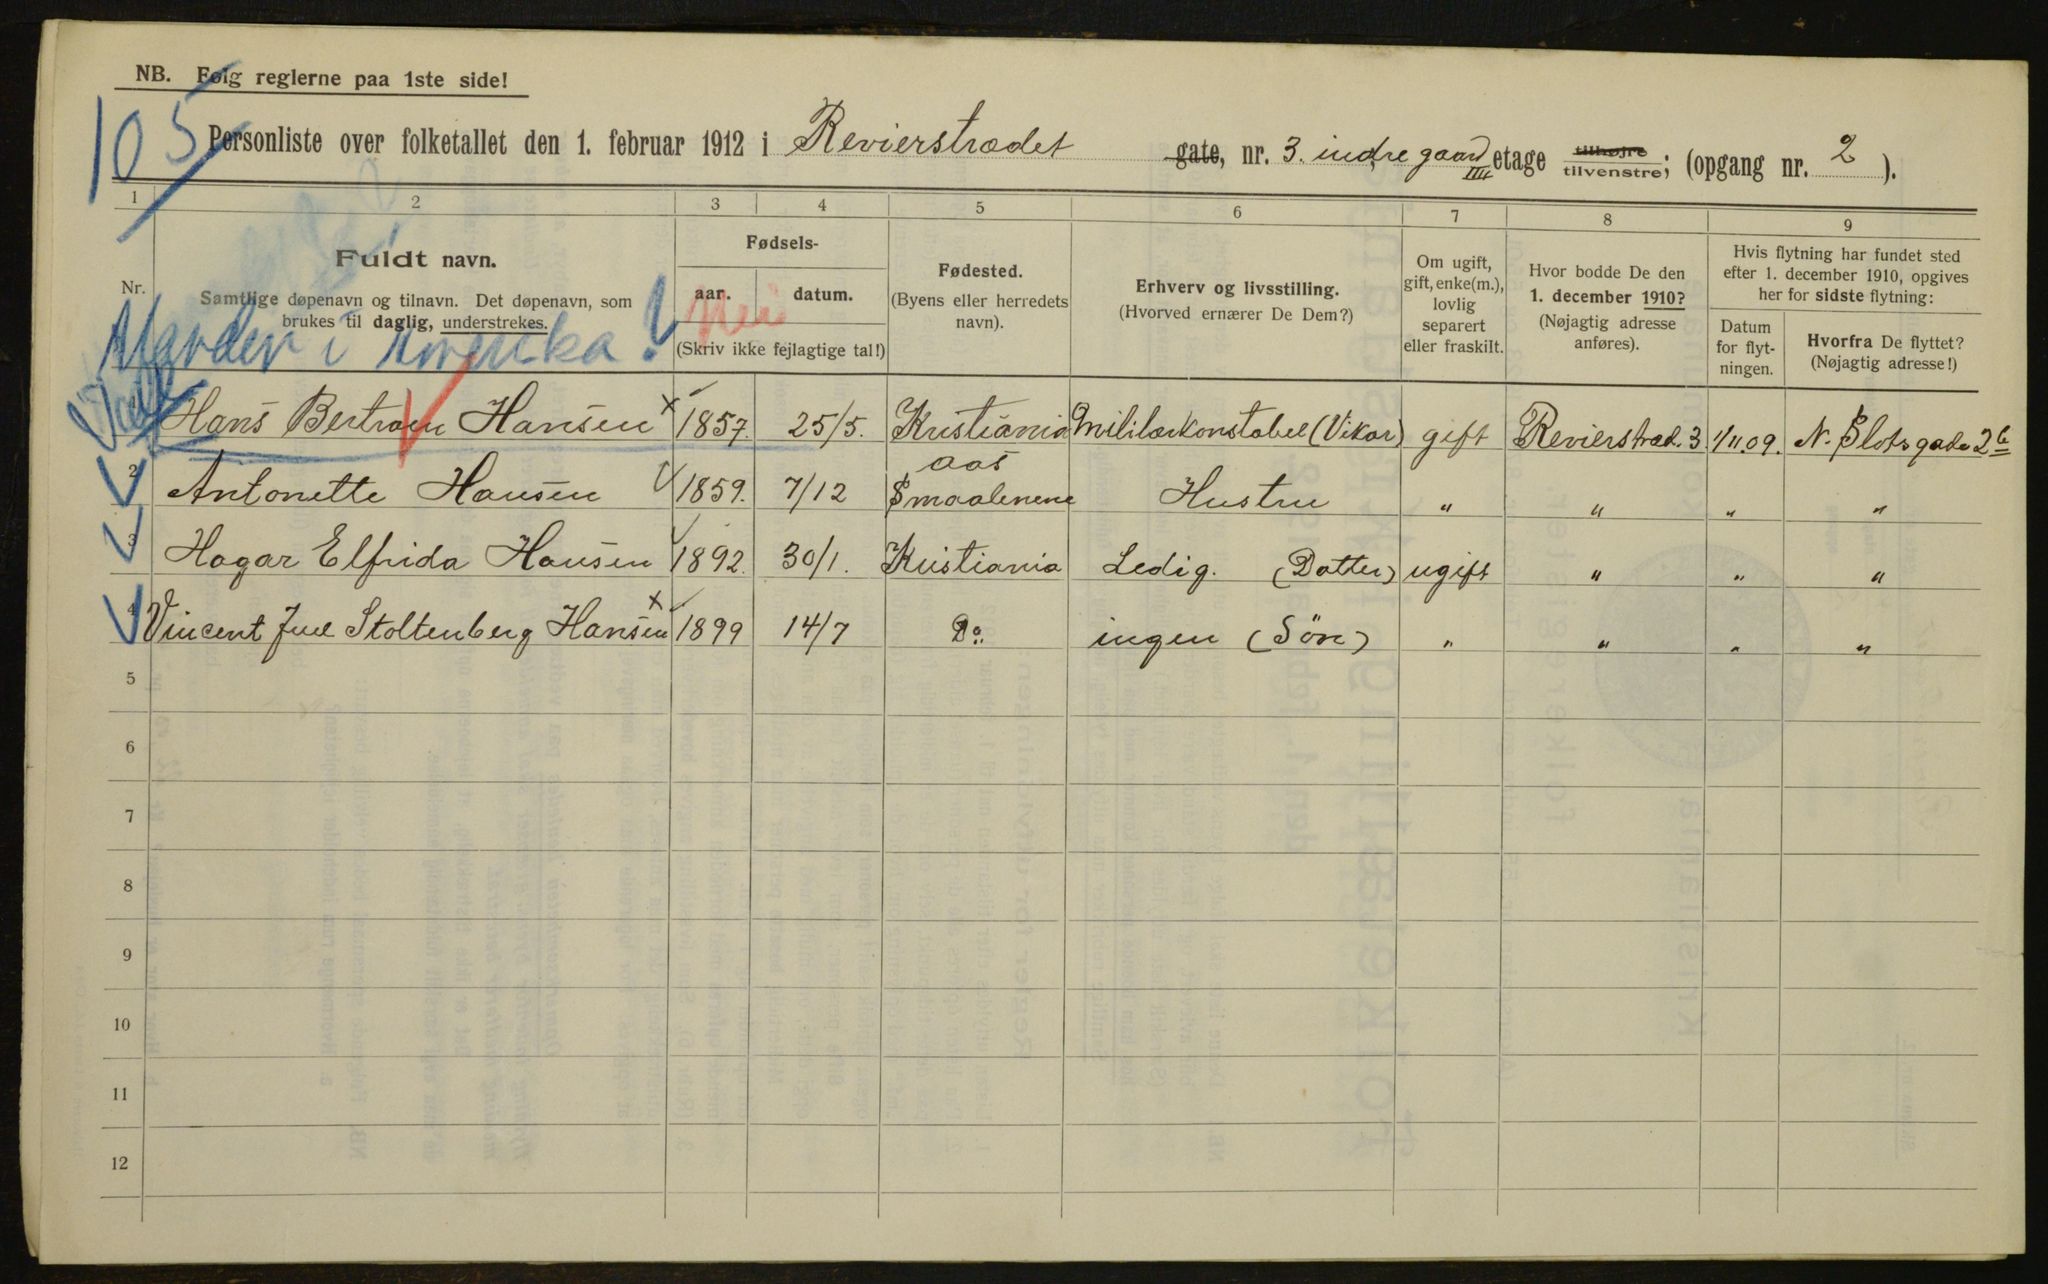 NB. Følg reglerne paa 1ste side!
105
Personliste over folketallet den 1. februar 1912 i Revierstrædet gate, nr. 3. indre gaard IIII etage tilhøjre tilvenstre; (opgang nr. 2).
1 2 3 4 5 6 7 8 9
Nr.
Fuldt navn.
Samtlige døpenavn og tilnavn. Det døpenavn, som
brukes til daglig, understrekes.
Fødsels-
aar. datum.
(Skriv ikke fejlagtige tal!)
Fødested.
(Byens eller herredets
navn).
Erhverv og livsstilling.
(Hvorved ernærer De Dem?)
Om ugift,
gift, enke(m.),
lovlig
separert
eller fraskilt.
Hvor bodde De den
1. december 1910?
(Nøjagtig adresse
anføres).
Hvis flytning har fundet sted
efter 1. december 1910, opgives
her for sidste flytning:
Datum
for flyt-
ningen.
Hvorfra De flyttet?
(Nøjagtig adresse!)
Nei
i Amerika!
1 Hans Bertram Hansen x 1857. 25/5. Kristiania Militærkonstabel (Vikar) gift Revierstræd. 3 1/11.09. N. Slotsgade 2b
2 Antonette Hansen 1859. 7/12 Aas Smaalenene Hustru " " " "
3 Hagar Elfrida Hansen 1892. 30/1. Kristiania Ledig. (Datter) ugift " " "
4 Vincent Juel Stoltenberg Hansen x 1899 14/7 Do. ingen (Sön) " " " "
5
6
7
8
9
10
11
12